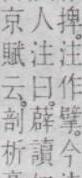 捭注作擘今
人注曰薜讀
京賦云剖析